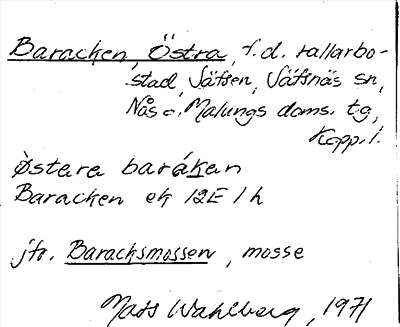 Baracken, Östra, f.d. rallarbo-
stad, Säfsen, Säfsnäs sn,
Nås o. Malungs doms. tg,
Kopp. l.
Östara barákan
Baracken ek 12E 1h
jfr. Baracksmossen, mosse
Mats Wahlberg, 1971